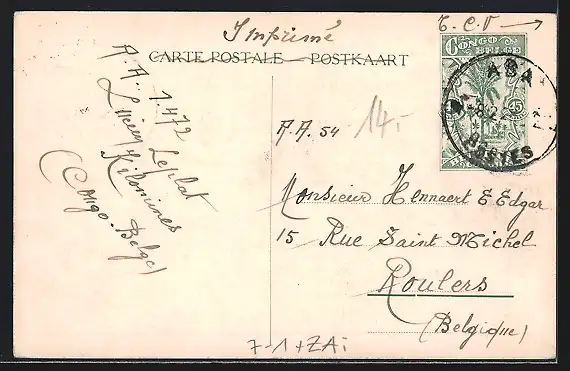 Imprimé
T.C.V →
CARTE POSTALE — POSTKAART
CONGO
BELGE
15
ABA
8 2
POSTES
A.A. 1.472
Lucien Leplat
Kilomines
(Congo-Belge)
A.A. 54
14.-
Monsieur Hennaert E Edgar
15 Rue Saint Michel
Roulers
(Belgique)
7-1+ZAi